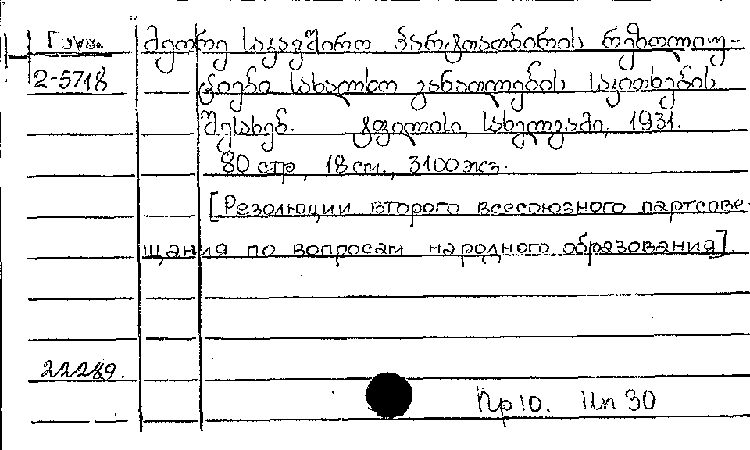 Груз. მეორე საკავშირო პარტთათბირის რეზოლიუ-
2-5718 ციები სახალხო განათლების საკითხების
შესახებ. ტფილისი, სახელგამი, 1931.
80 стр., 18 см., 3100 экз.
[Резолюции второго всесоюзного партсове-
щания по вопросам народного образования].
22289.
Пр 10. Ип 30